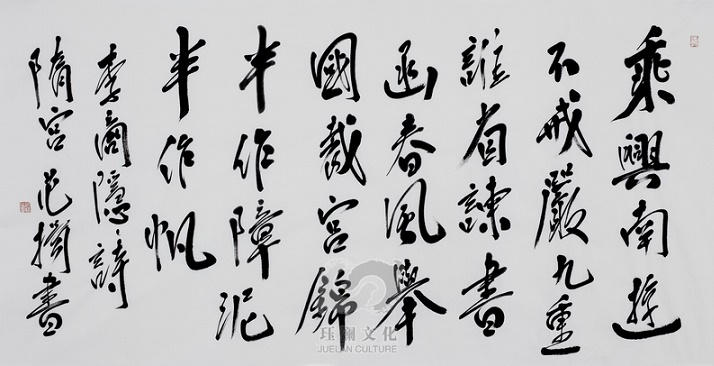 乘興南遊
不戒嚴九重
誰省諫書
函春風舉
國裁宮錦
半作障泥
半作帆
李商隱詩
隋宮范擱書
珏澜文化
JUELAN CULTURE